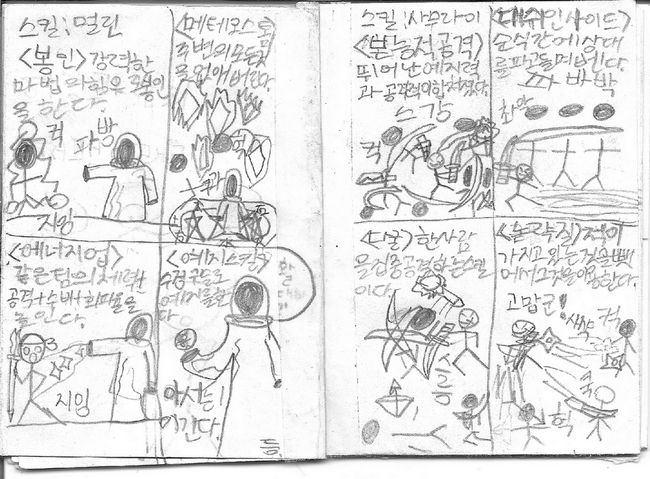 스킬;멀린
<봉인> 강력한
마법의힘으로봉인
을 한다.
컥
파방
지잉
<메테오스토
주변의모든
을없애버린다.
쿠과
<에너지업>
같은팀의체력+
공격+수비+회피율을
높인다.
지잉
<예지스킬>
수정구들로
예지를한
다
아서는
이긴다.
등.
스킬;사무라이
<본능적공격>
뛰어난예지력
과공격력이합쳐졌다.
스강
컥
<대쉬인사이드>
순식간에상대
를파고들며벤다.
파바박
촤악
<다굴> 한사람
을집중공격하는스킬
이다.
<노략질> 적이
가지고있는것을빼
에서그것을이용한다.
고맙군!
새꺄
컥
슉